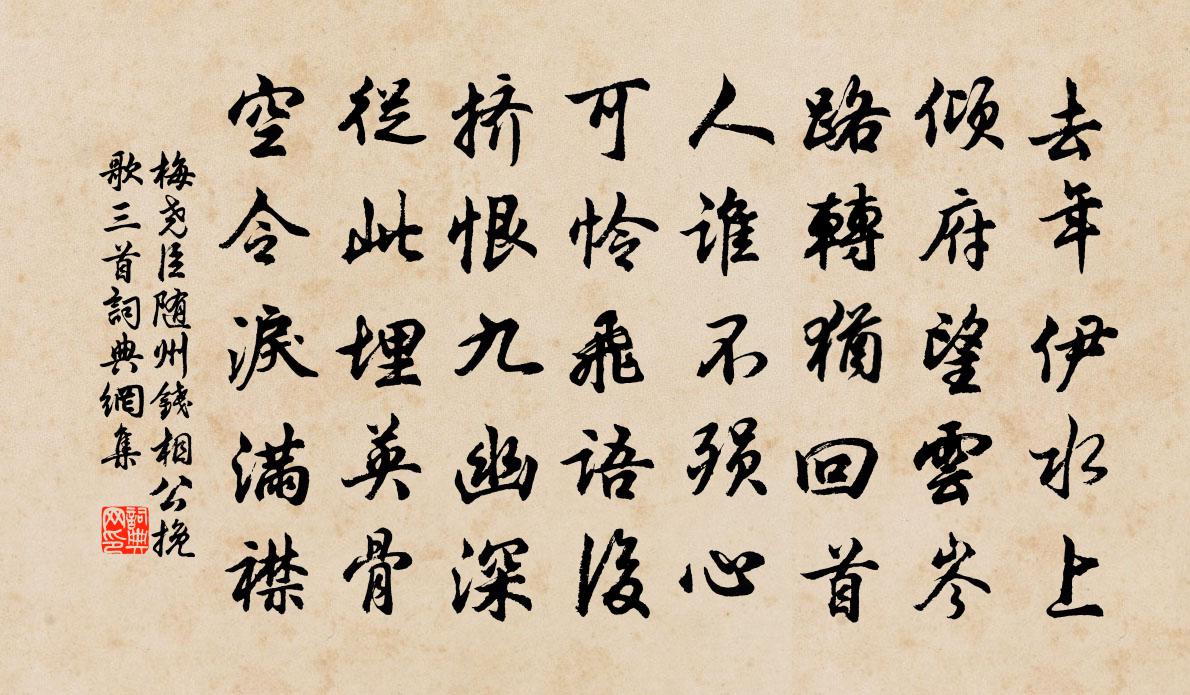 去年伊水上
傾府望雲岑
路轉猶回首
人誰不殞心
可怜飛語後
挤恨九幽深
從此埋英骨
空令淚满襟
梅尧臣随州錢相公挽
歌三首詞典網集
詞典
网印